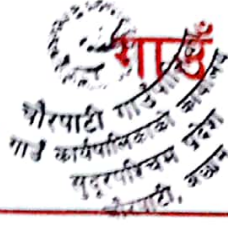 गाउँ
चौरपाटी गाउँपालिका
गाउँ कार्यपालिकाको कार्यालय
सुदूरपश्चिम प्रदेश
चौरपाटी, अछाम